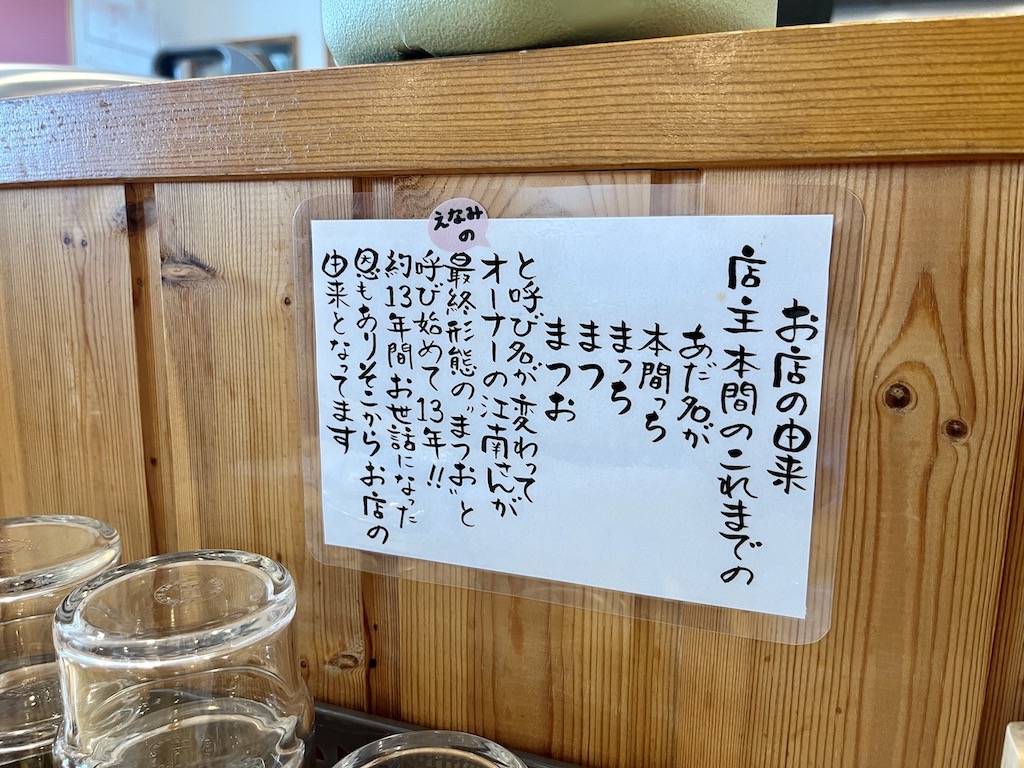 お店の由来
店主本間のこれまでの
あだ名が
本間っち
まっち
まつ
まつお
と呼び名が変わって
オーナーの江南さんが
えなみの
最終形態の"まつお"と
呼び始めて13年!!
約13年間お世話になった
恩もありそこからお店の
由来となってます